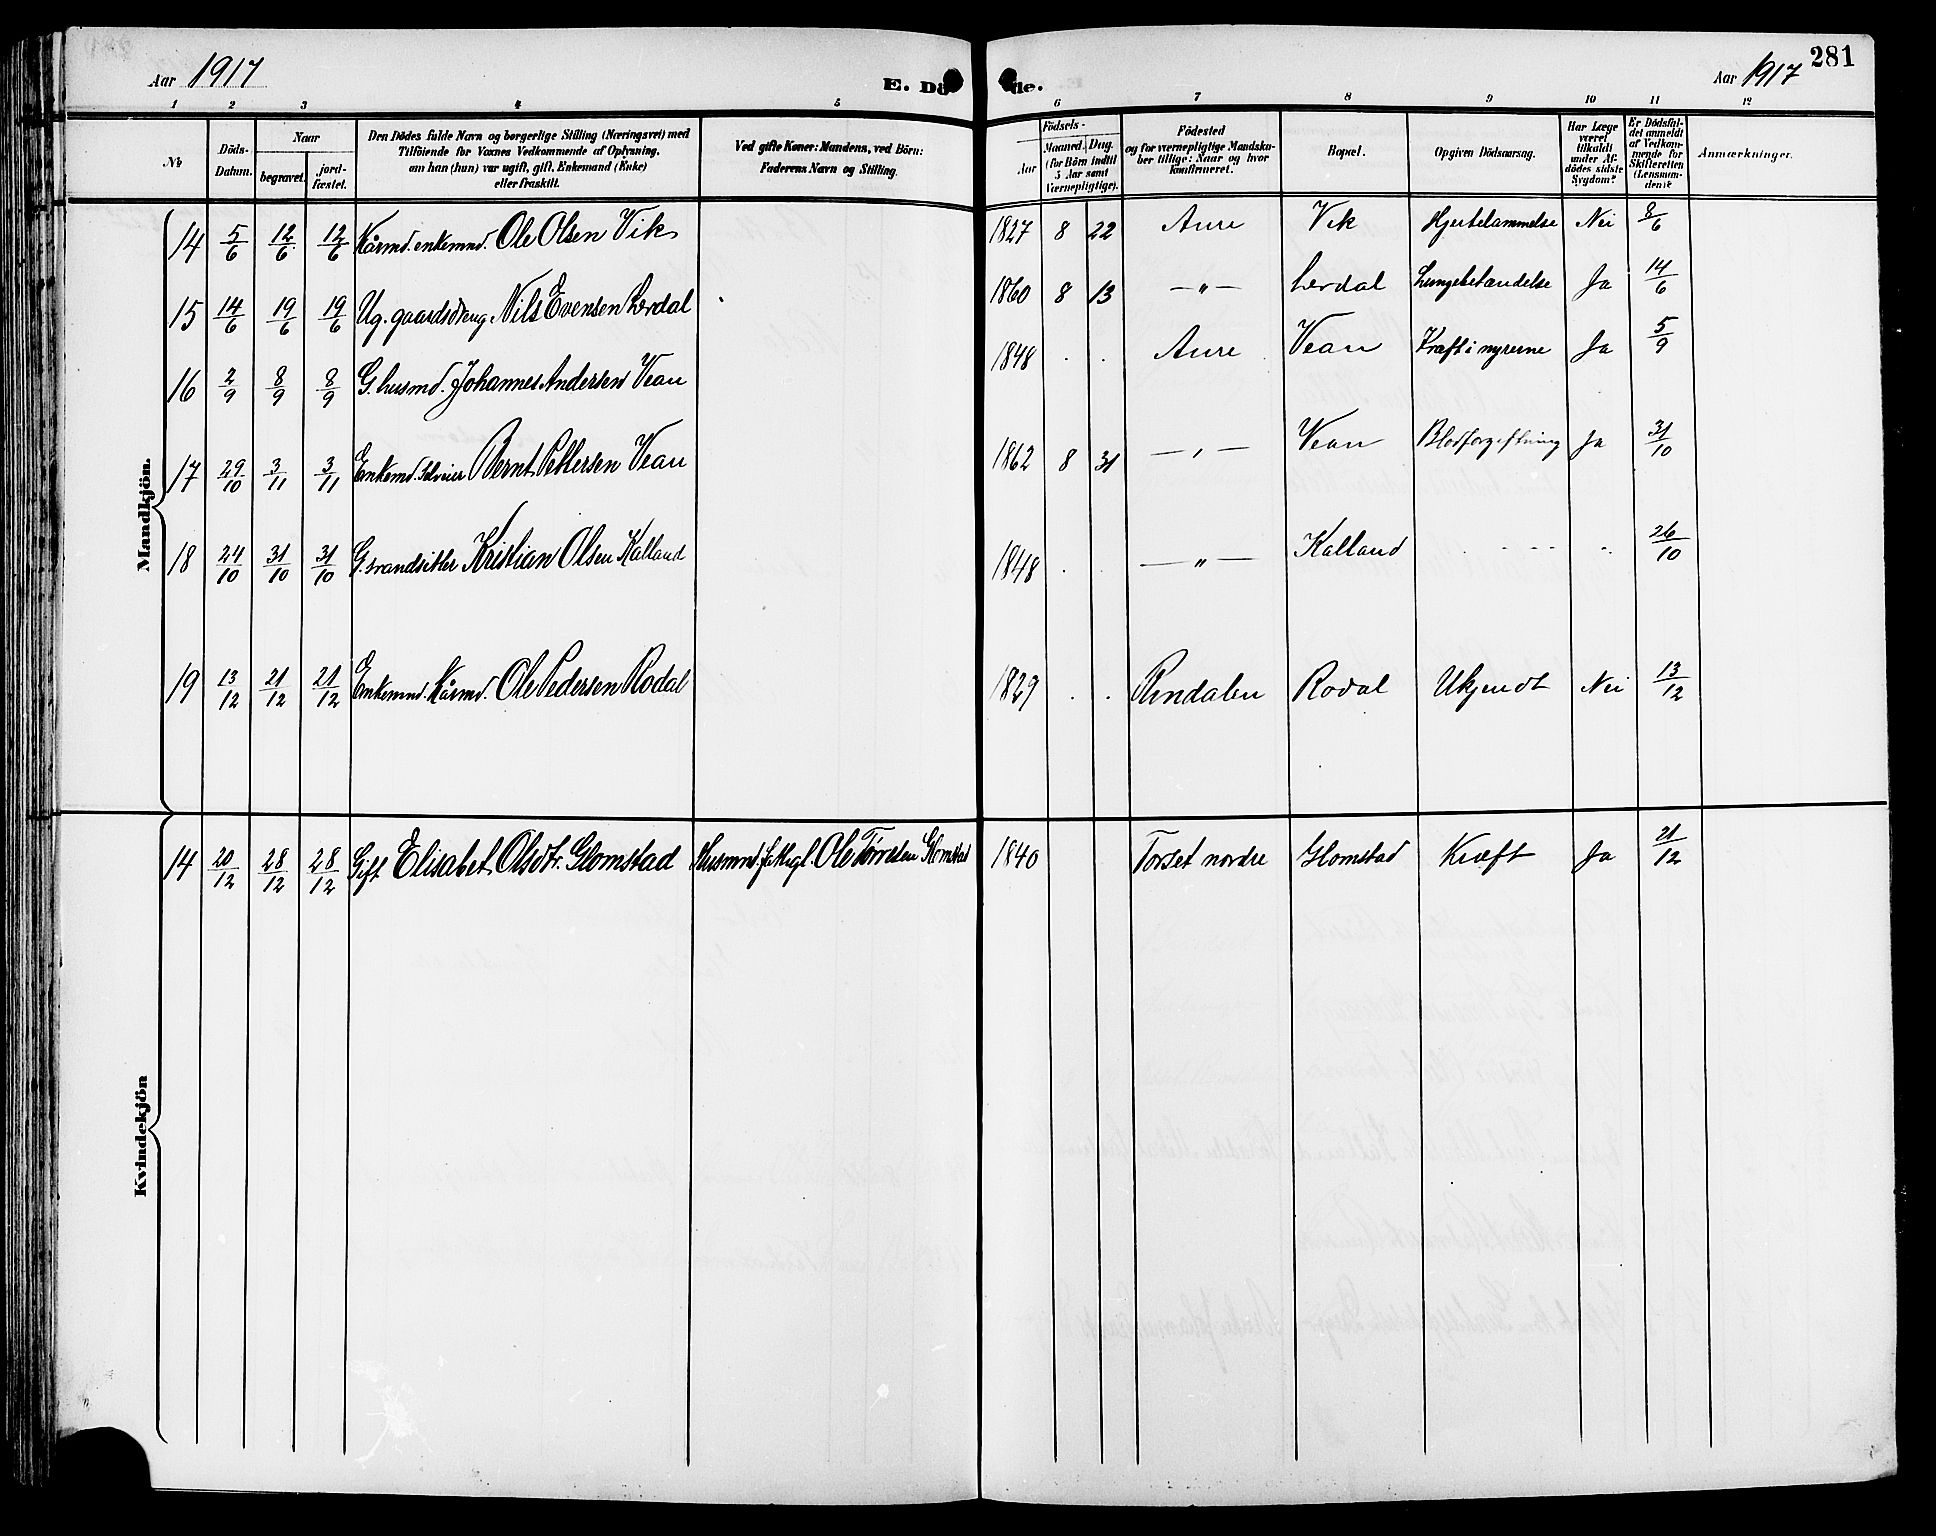 281
Aar 1917
E. Dö de.
Aar 1917
1 2 3 4 5 6 7 8 9 10 11 12
No
Döds-
Datum.
Naar
begravet.
jord-
fæstet.
Den Dödes fulde Navn og borgerlige Stilling (Næringsvei) med
Tilföiende for Voxnes Vedkommende af Oplysning,
om han (hun) var ugift, gift, Enkemand (Enke)
eller fraskilt.
Ved gifte Koner: Mandens, ved Börn:
Faderens Navn og Stilling.
Födsels-
Aar
Maaned. Dag.
(for Börn indtil
5 Aar samt
Værnepligtige).
Födested
og for værnepligtige Mandska-
ber tillige: Naar og hvor
konfirmeret.
Bopæl.
Opgiven Dödsaarsag.
Har Læge
været
tilkaldt
under Af-
dödes sidste
Sygdom?
Er Dödsfal-
det anmeldt
af Vedkom-
mende for
Skifteretten
(Lensman-
den)?
Anmærkninger.
Mandkjön.
14 5/6 12/6 12/6 Kårmd. enkemnd. Ole Olsen Vik 1827 8 22 Aure Vik Hjertelammelse Nei 8/6
15 14/6 19/6 19/6 Ug. gaardsdreng. Nils Evensen Lerdal 1860 8 13 — " — Lerdal Lungebetændelse Ja 14/6
16 2/9 8/9 8/9 G. husmd. Johannes Andersen Vean 1848 . . Aure Vean Kræft i nyrerne Ja 5/9
17 29/10 3/11 3/11 Enkemd. selveier Bernt Pettersen Vean 1862 8 31 — " — Vean Blodforgiftning Ja 31/10
18 24/10 31/10 31/10 G. strandsitter Kristian Olsen Kalland 1848 . . — " — Kalland 26/10
19 13/12 21/12 21/12 Enkemnd. Kårmd. Ole Pedersen Rodal 1829 . . Rindalen Rodal Ukjendt Nei 13/12
Kvindekjön
14 20/12 28/12 28/12 Gift Elisabet Olsdtr. Glomstad Husmnd. fattigl. Ole Torresen Glomstad 1840 Torset nordre Glomstad Kræft Ja 21/12